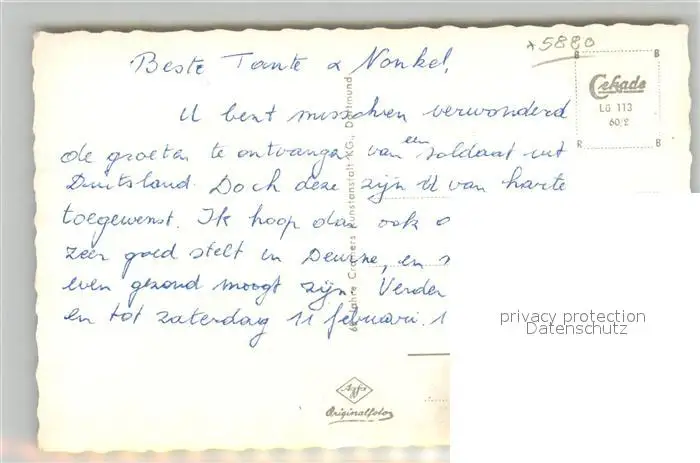 *5880
Beste Tante & Nonkel,
U bent misschien verwonderd
de groeten te ontvangen van een soldaat uit
Duitsland. Doch deze zijn U van harte
toegewenst. Ik hoop dan ook
zeer goed stelt in Deurne, en
even gezond moogt zijn. Verder
en tot zaterdag 11 februari.
B B
Cekade
Lü 113
60/2
R B
Jahre Cramers Kunstanstalt KG., Dortmund
Agfa
Originalfoto
privacy protection
Datenschutz